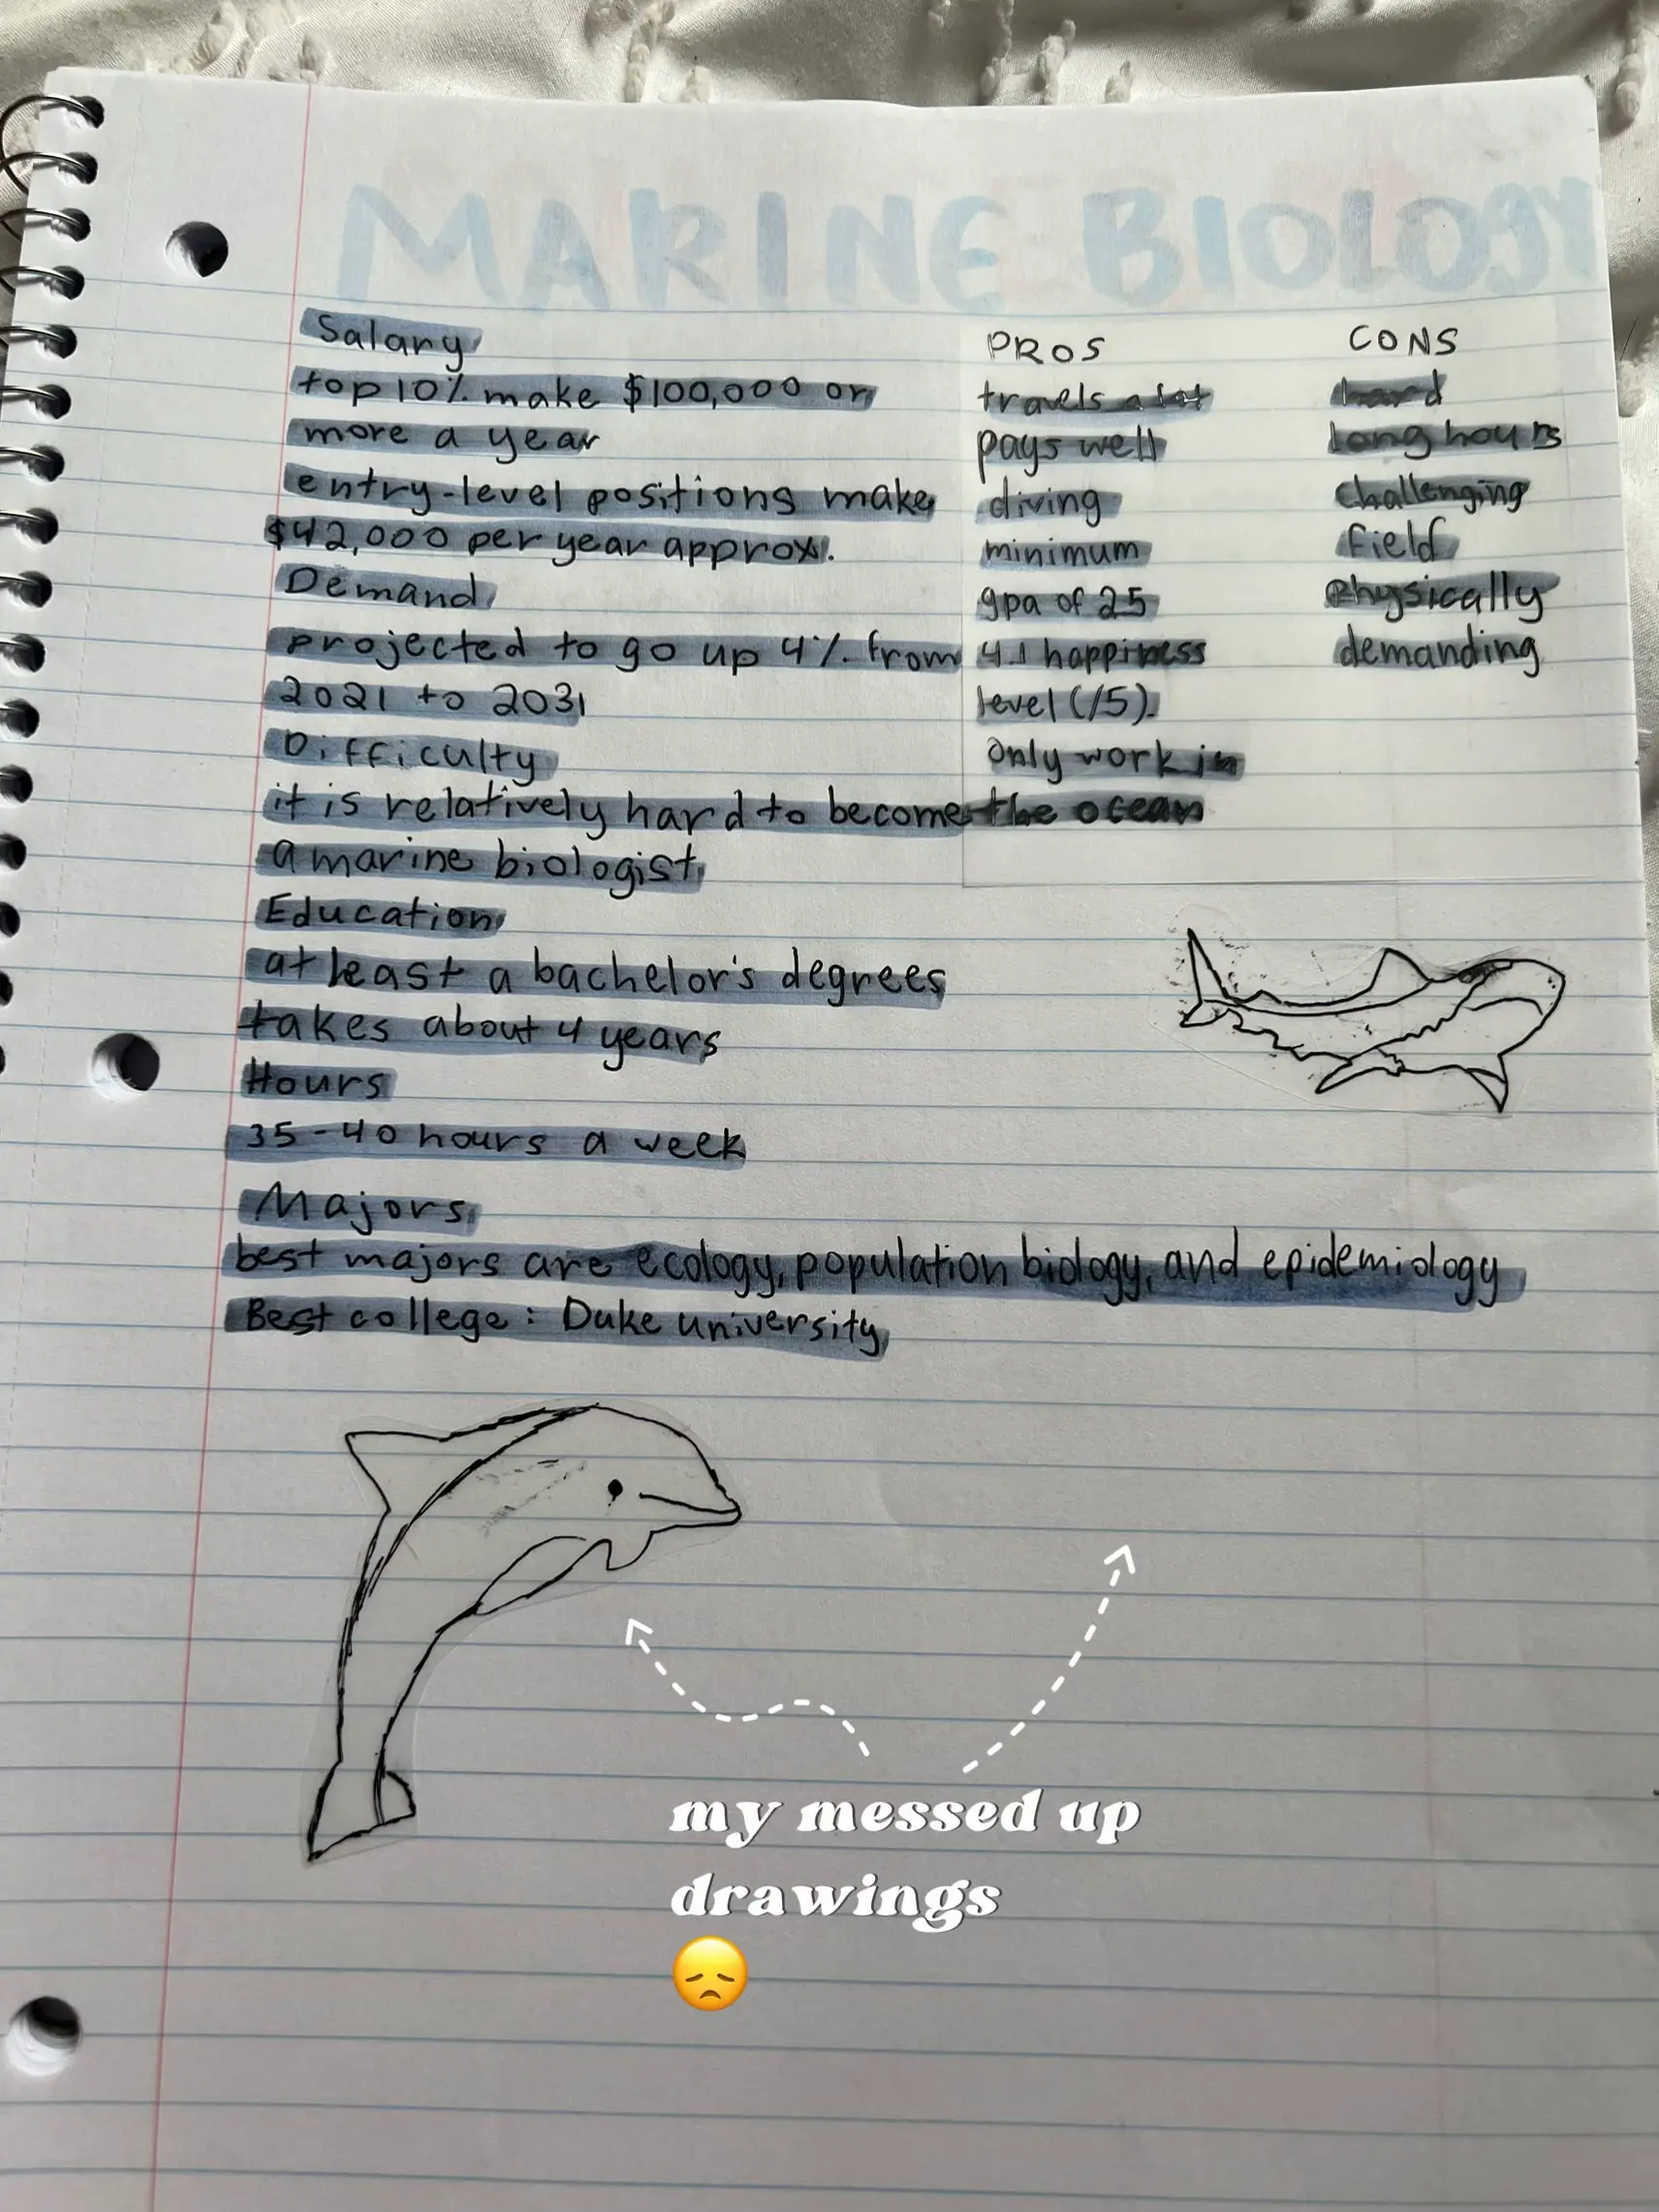 MARINE BIOLOGY
Salary
top 10% make $100,000 or
more a year
entry-level positions make
$42,000 per year approx.
Demand
projected to go up 4% from
2021 to 2031
Difficulty
it is relatively hard to become
a marine biologist
Education
at least a bachelor's degrees
takes about 4 years
Hours
35-40 hours a week
Majors
best majors are ecology, population biology, and epidemiology
Best college: Duke university
PROS
travels a lot
pays well
diving
minimum
gpa of 25
4.1 happiness
level (/5).
only work in
the ocean
CONS
hard
long hours
challenging
field
Physically
demanding
my messed up
drawings
😞